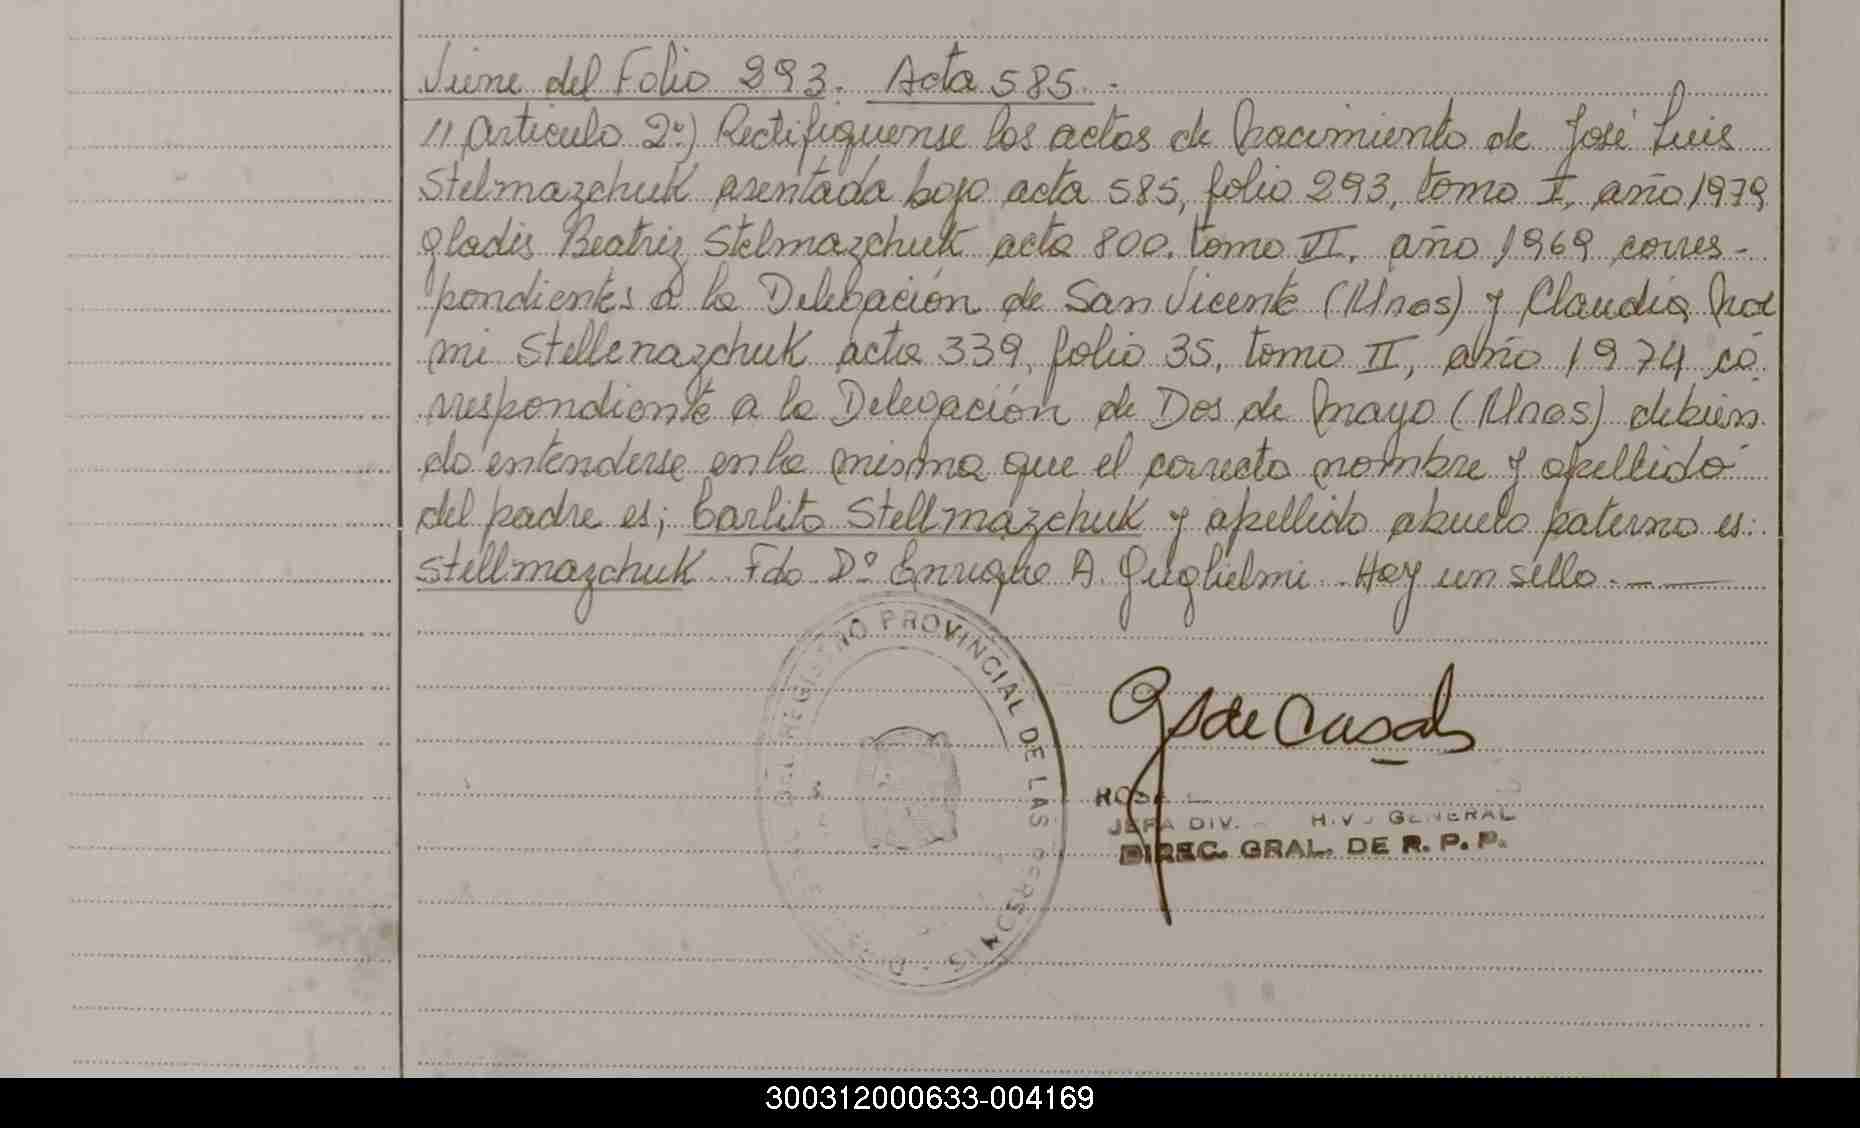 Viene del Folio 293. Acta 585.-
// Artículo 2º) Rectifiquense las actas de Nacimiento de José Luis
Stelmazchuk asentada bajo acta 585, folio 293, tomo I, año 1979
Gladis Beatriz Stelmazchuk acta 800. tomo VI, año 1969 corres-
pondientes a la Delegación de San Vicente (Mnes) y Claudia Noe
mi Stellenazchuk acta 339, folio 35, tomo II, año 1974 co
rrespondiente a la Delegación de Dos de Mayo (Mnes) debien
do entenderse en la misma que el correcto nombre y apellido
del padre es; Carlito Stellmazchuk y apellido abuelo paterno es:
Stellmazchuk Fdo Dº Enrique A. Guglielmi. Hay un sello.-
REGISTRO PROVINCIAL DE LAS PERSONAS
de Casals
ROSA
JEFA DIV. GENERAL
DIREC. GRAL. DE R. P. P.
300312000633-004169